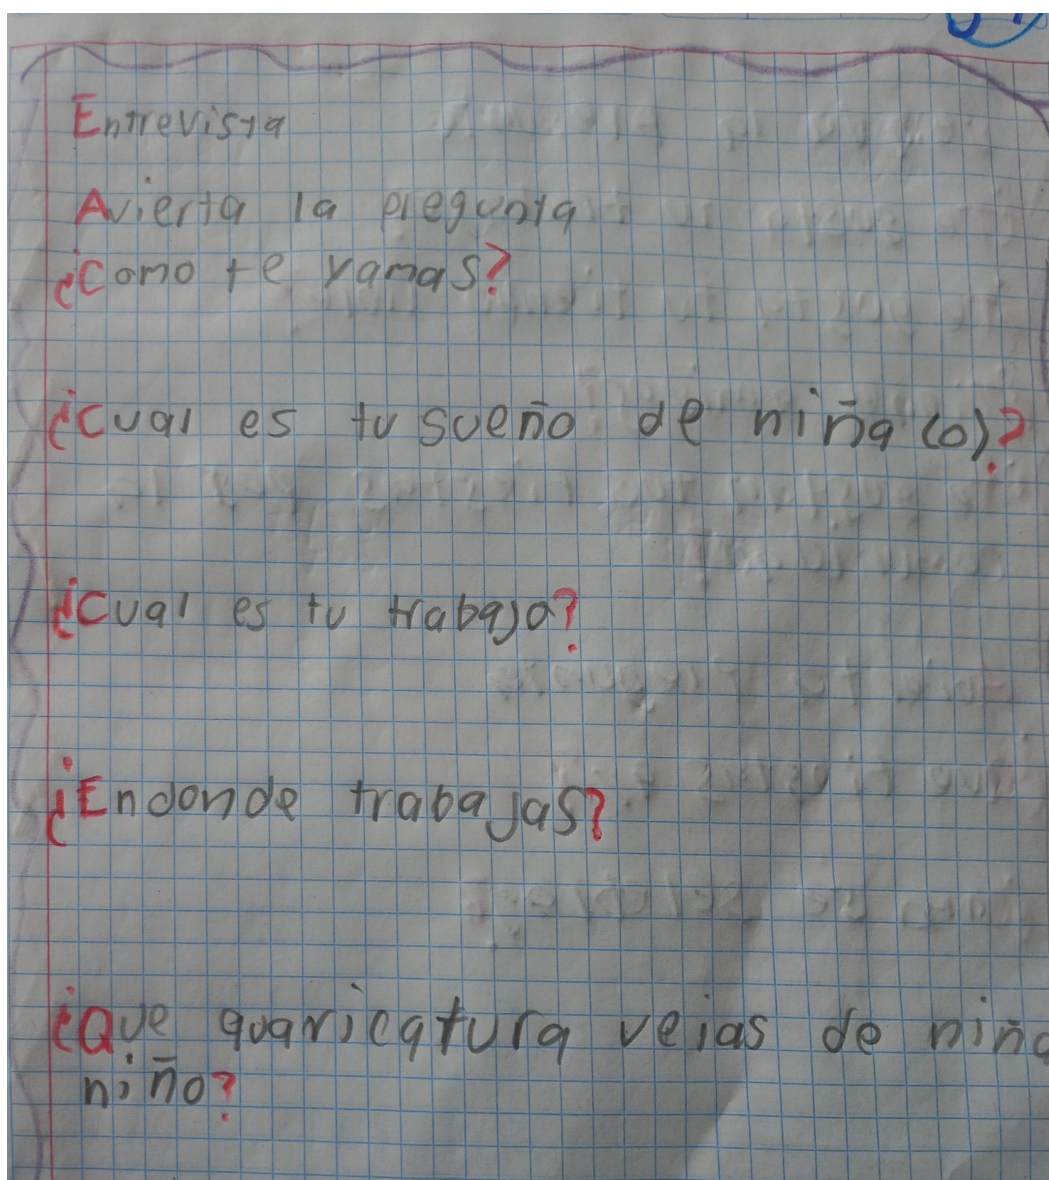 Entrevista
Avierta la pregunta
¿Como te yamas?
¿Cual es tu sueño de niña (o)?
¿Cual es tu trabajo?
¿Endonde trabajas?
¿Que quaricatura veias de niña
niño?